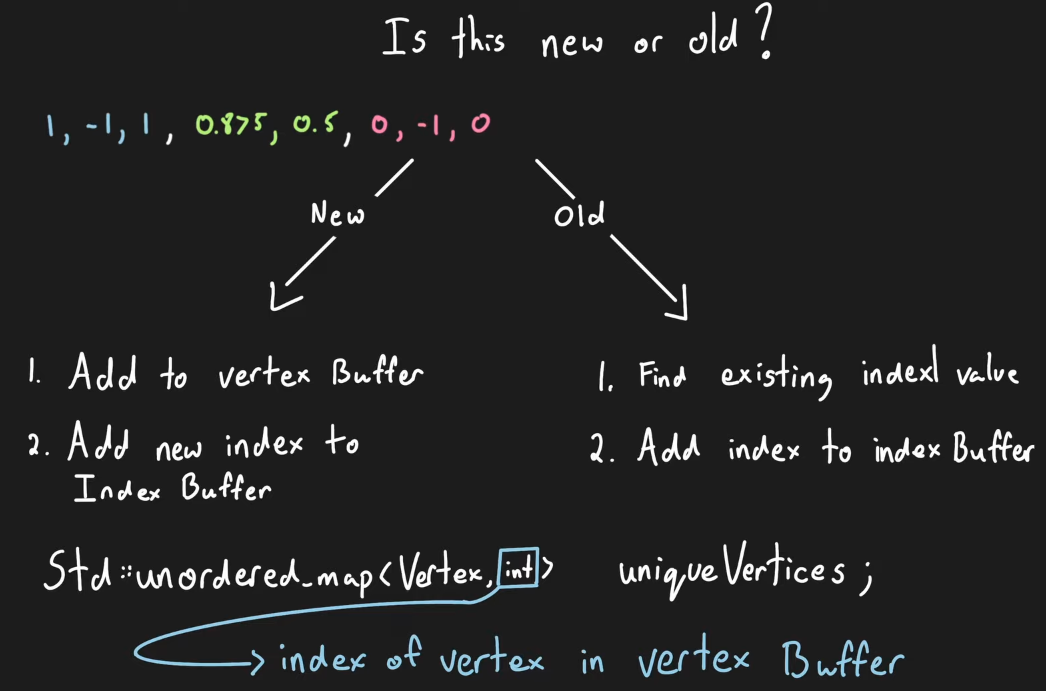 Is this new or old?
1, -1, 1, 0.875, 0.5, 0, -1, 0
New
Old
1. Add to vertex Buffer
2. Add new index to
Index Buffer
1. Find existing index value
2. Add index to index Buffer
Std::unordered_map<Vertex, int> uniqueVertices;
index of vertex in vertex Buffer